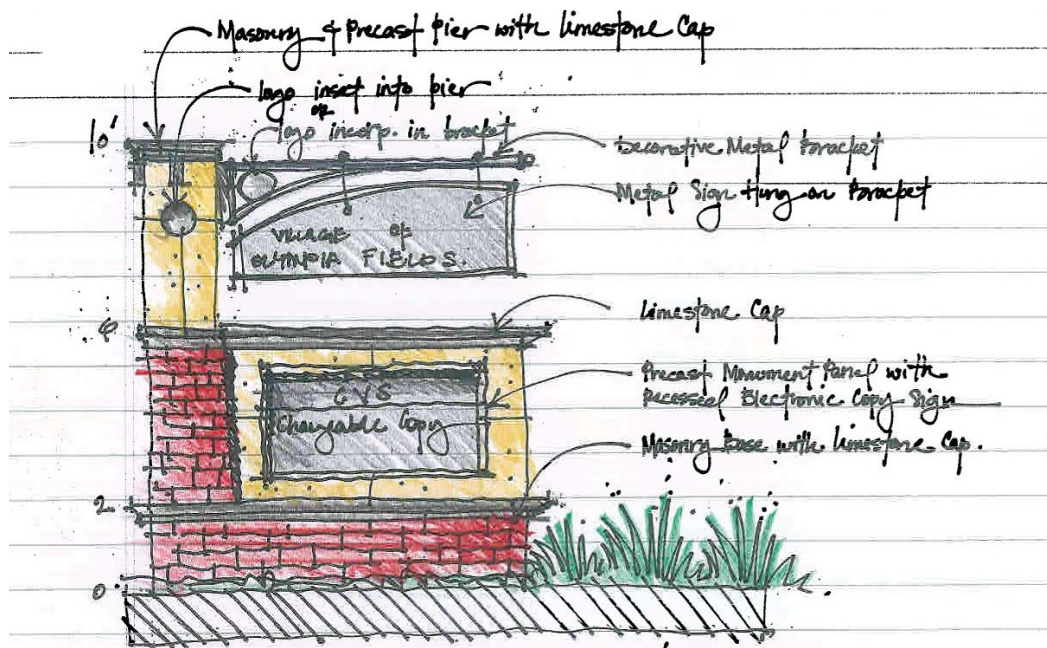 Masonry & Precast Pier with limestone Cap
logo inset into pier
or
logo incorp. in bracket
10'
Decorative Metal Bracket
Metal Sign Hung on Bracket
VILLAGE OF
OLYMPIA FIELDS.
6
Limestone Cap
Precast Monument Panel with
Recessed Electronic Copy Sign
CVS
Changeable Copy
Masonry Base with Limestone Cap.
2
0